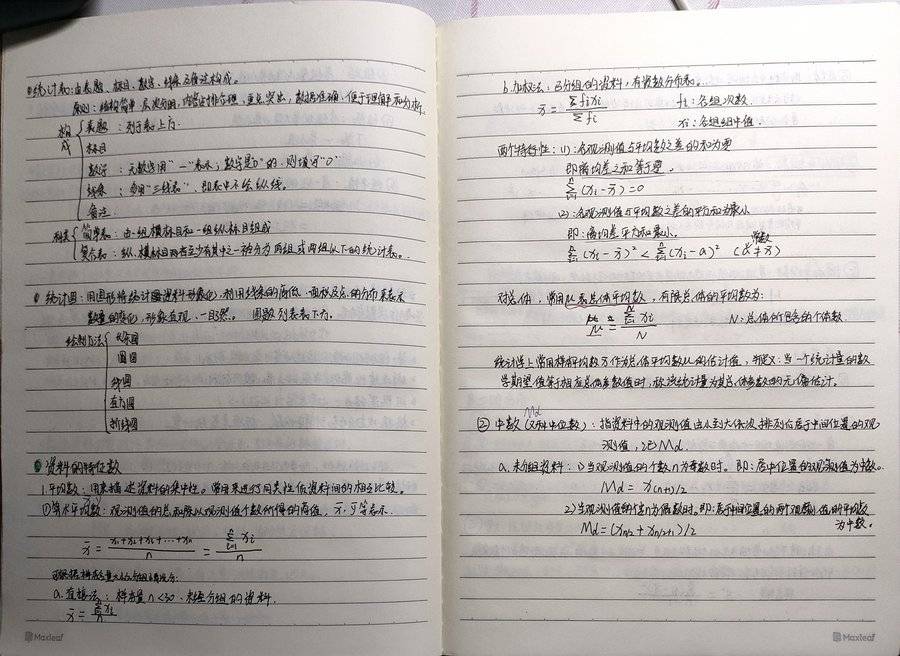 统计表:由表题、标目、数字、线条及备注构成。
原则:结构简单,层次分明,内容安排合理,重点突出,数据准确,便于理解和分析
构成
表题:列于表上方.
标目
数字:无数字用"—"表示;数字是"0"的,则填写"0"
线条:多用"三线表",即表中不绘纵线。
备注
种类
简单表:由一组横标目和一组纵标目组成
复合表:纵、横标目两者至少有其中之一被分为两组或两组以下的统计表。
统计图:用图形将统计资料形象化,利用线条的高低、面积及点的分布来表示
数量的变化,形象直观,一目了然。图题列于表下方.
绘制方法
长条图
圆图
线图
直方图
折线图
资料的特征数
1.平均数:用来描述资料的集中性。常用来进行同类性质资料间的相互比较。
①算术平均数:观测值的总和除以观测值个数所得的商值,x̄,ȳ等表示.
x̄ = (x₁+x₂+x₃+…+xn)/n = Σxi/n
a.直接法:样本含量n<30.未经分组的资料.
x̄ = Σxi/n
Maxleaf
b.加权法:已分组的资料,有次数分布表。
x̄ = Σfixi/Σfi
fi:各组次数.
xi:各组组中值.
两个特征性:(1):各观测值与平均数之差的和为零
即离均差之和等于零.
Σ(xi-x̄)=0
(2):各观测值与平均数之差的平方和为最小
即:离均差平方和最小。
Σ(xi-x̄)² < Σ(xi-a)² (常数a≠x̄)
对总体,常用μ表总体平均数,有限总体的平均数为:
μ = Σxi/N
N:总体所包含的个体数.
统计学上常用样本平均数x̄作为总体平均数μ的估计值,并定义:当一个统计量的数
学期望值等于相应总体参数值时,称该统计量为其总体参数的无偏估计。
②中数(又称中位数)Md:指资料中的观测值由小到大依次排列后居于中间位置的观
测值,记Md.
a.未分组资料:1)当观测值的个数n为奇数时。即:居中位置的观测值为中数。
Md = x(n+1)/2
2)当观测值的个数n为偶数时.即:居中间位置的两个观测值的平均数
为中数。
Md=(xn/2+xn/2+1)/2
Maxleaf